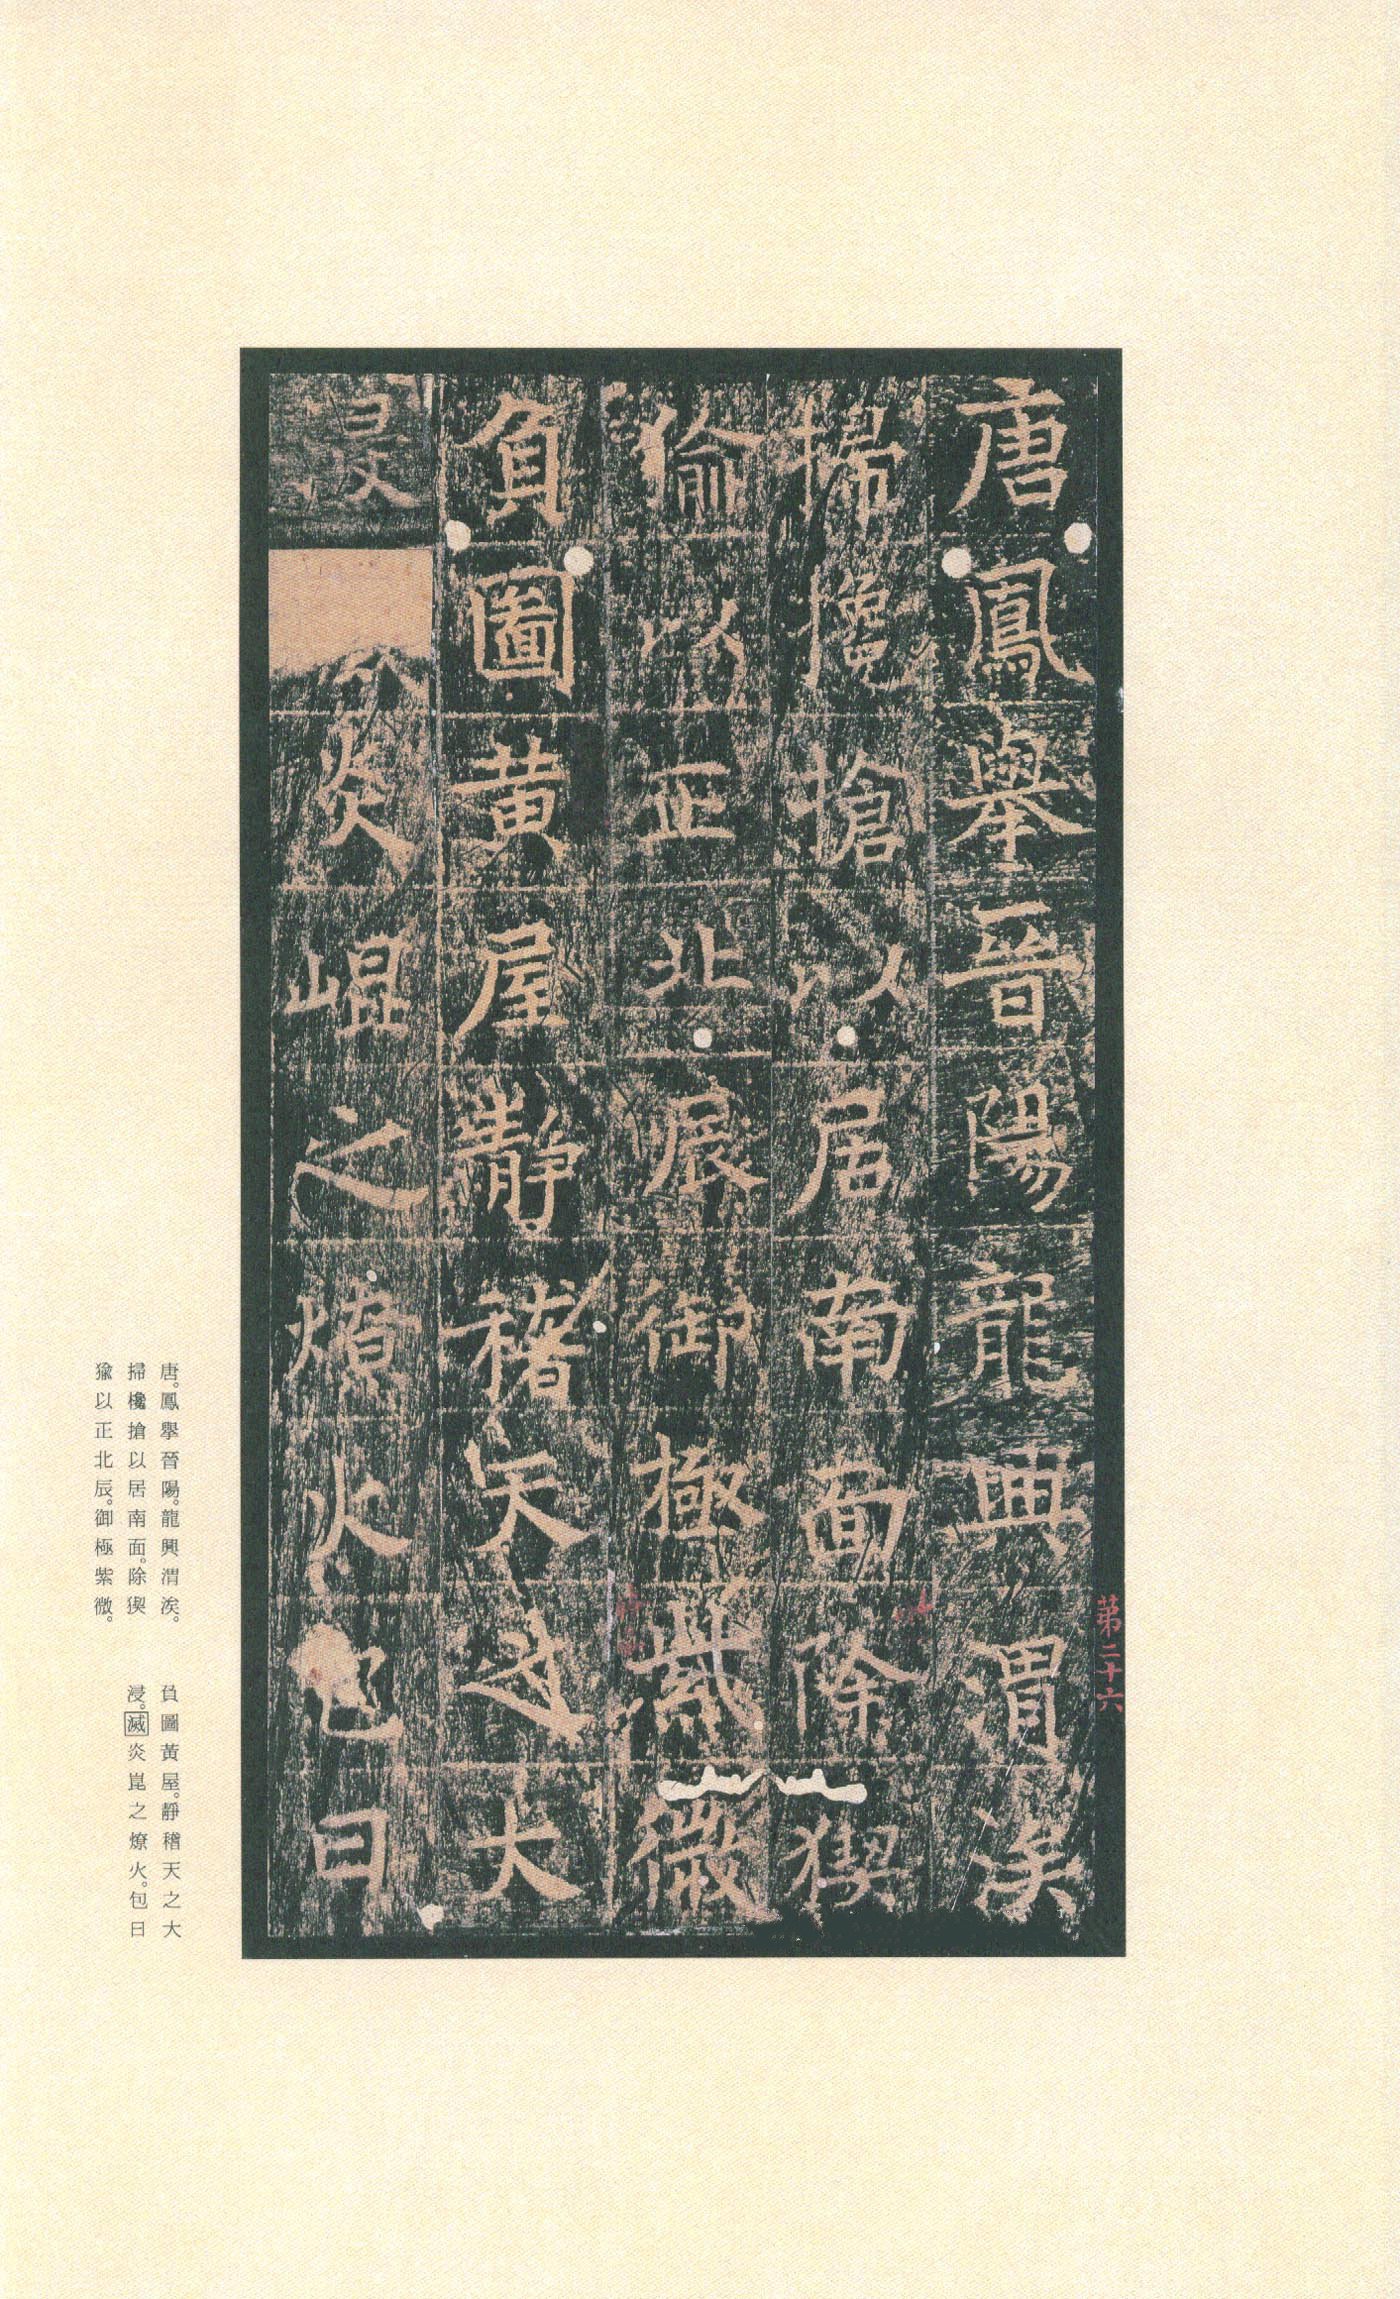 唐鳳舉晉陽龍興渭涘
掃欃搶以居南面除猰
㺄以正北辰御極紫微
負圖黃屋靜稽天之大
浸炎崐之燎火包日
第二十六
唐。鳳舉晉陽。龍興渭涘。
掃欃搶以居南面。除猰
㺄以正北辰。御極紫微。
負圖黃屋。靜稽天之大
浸。滅炎崑之燎火。包日